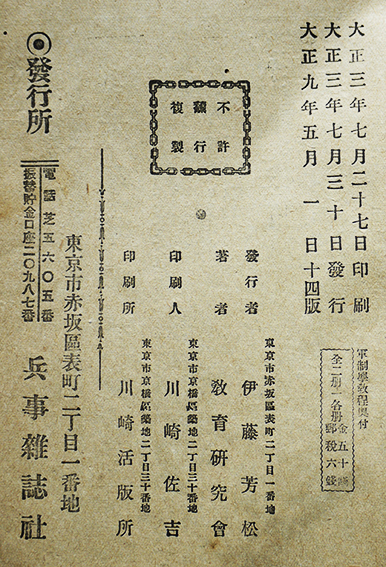 大正三年七月二十七日印刷
大正三年七月三十日發行
大正九年五月一日十四版
軍制學敎程奧付
全二册一各册金五十錢
郵税六錢
不許
飜行
複製
東京市赤坂區表町二丁目一番地
發行者 伊藤芳松
著者 敎育硏究會
東京市京橋區築地二丁目三十番地
印刷人 川崎佐吉
東京市京橋區築地二丁目三十番地
印刷所 川崎活版所
發行所
東京市赤坂區表町二丁目一番地
兵事雜誌社
電話芝五六〇五番
振替貯金口座二〇九八七番